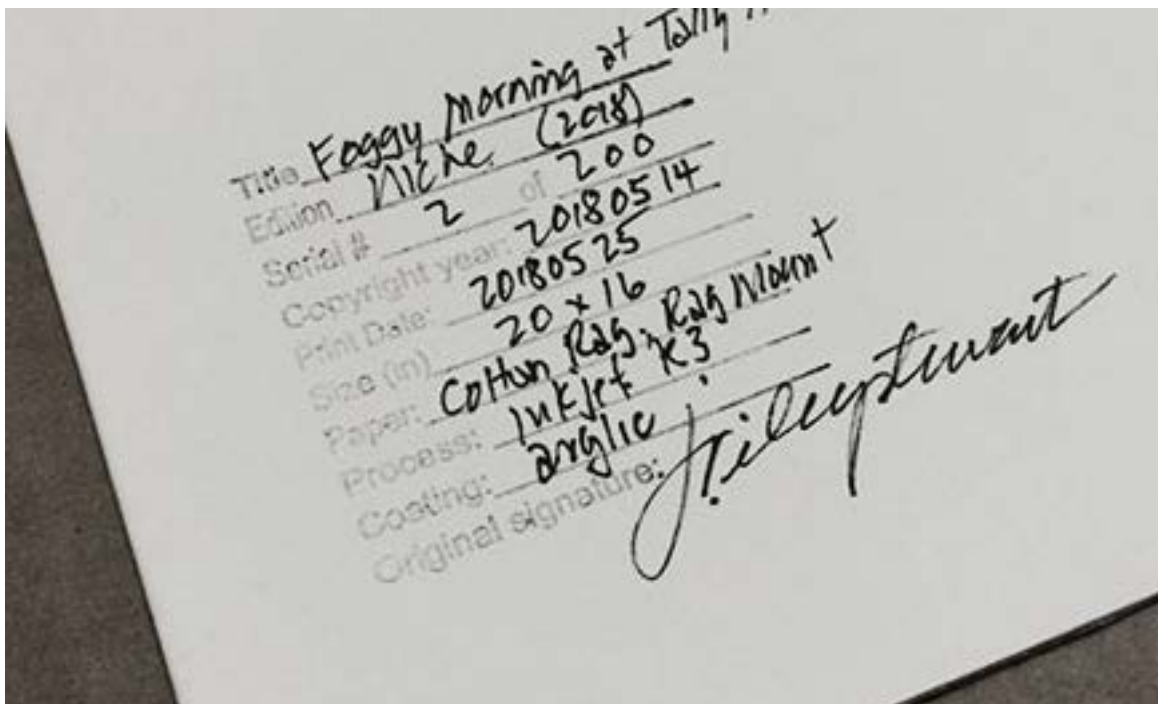 Title Foggy Morning at Tally
Edition Niche (2018)
Serial # 2 of 200
Copyright year: 20180514
Print Date: 20180525
Size (in) 20 x 16
Paper: Cotton Rag, Rag Mount
Process: Inkjet K3
Coating: arylic
Original signature: